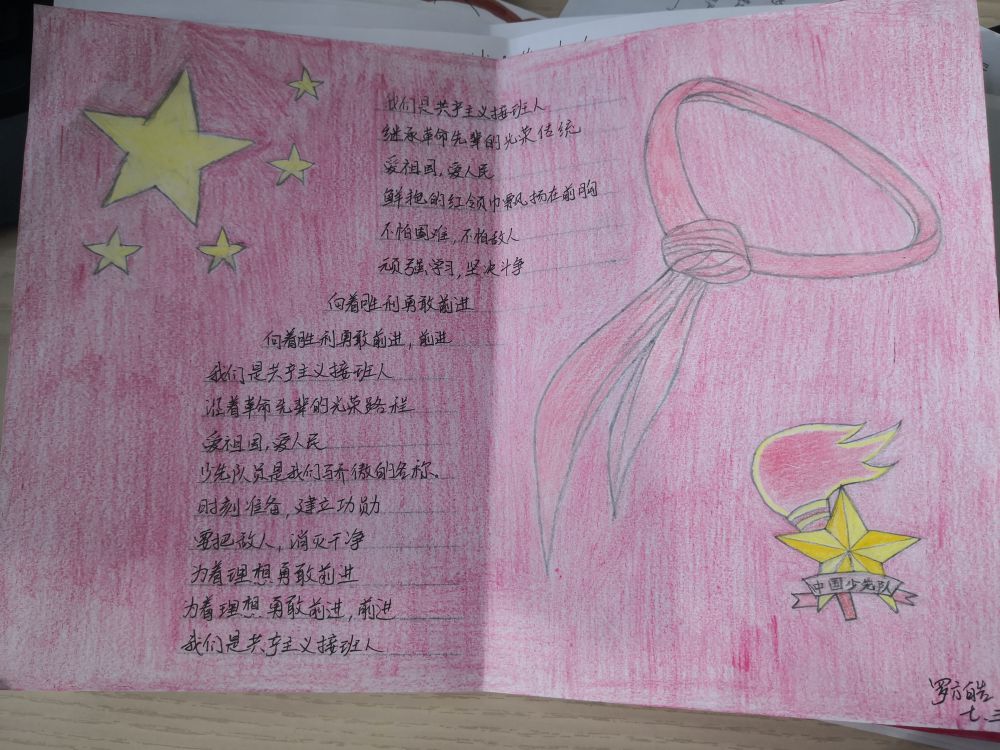 我们是共产主义接班人
继承革命先辈的光荣传统
爱祖国,爱人民
鲜艳的红领巾飘扬在前胸
不怕困难,不怕敌人
顽强学习,坚决斗争
向着胜利勇敢前进
向着胜利勇敢前进,前进
我们是共产主义接班人
沿着革命先辈的光荣路程
爱祖国,爱人民
少先队员是我们骄傲的名称。
时刻准备,建立功勋
要把敌人,消灭干净
为着理想勇敢前进
为着理想勇敢前进,前进
我们是共产主义接班人
中国少先队
罗方皓
七.三